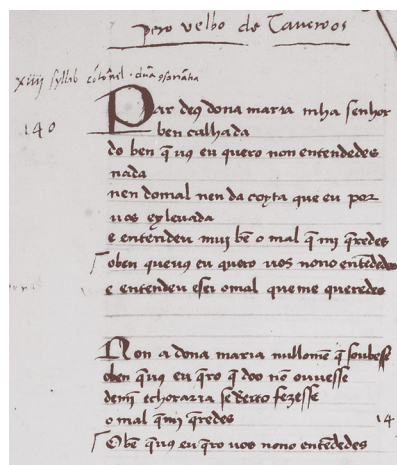 pero velho de Taueroos
xiiij syllab
140
Par deꝯ dona maria mha senhor
ben calhada
do ben q̄ uꝯ eu quero non entendedes
nada
nen domal nen da coyta que eu por
uos ey leuada
e entendeu mui bē o mal q̄ mi q̄redes
oben queuꝯ eu quero uos nono entēdedes
e entendeu esei omal queme queredes
Non a dona maria nullomē q̄ soubesse
oben q̄uꝯ eu q̄ro q̄ doo nō ouuesse
demī echoraria se dereito fezesse
o mal q̄mi q̄redes
14
Obē q̄uꝯ eu q̄ro uos nono entēdedes